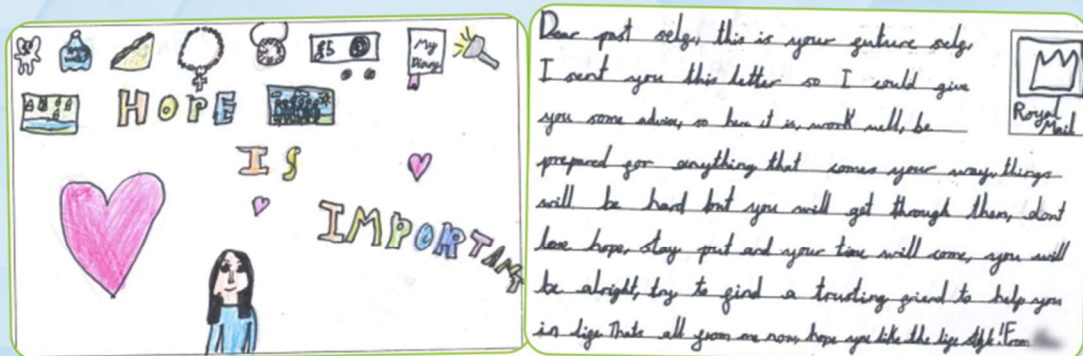 £5
My
Diary
HOPE
IS
IMPORTANT
Dear past self, this is your future self,
I sent you this letter so I could give
you some advise, so here it is, work well, be
prepared for anything that comes your way, things
will be hard but you will get through them, dont
lose hope, stay put and your time will come, you will
be alright, try to find a trusting friend to help you
in life. Thats all from me now, hope you like the life style! From
Royal
Mail